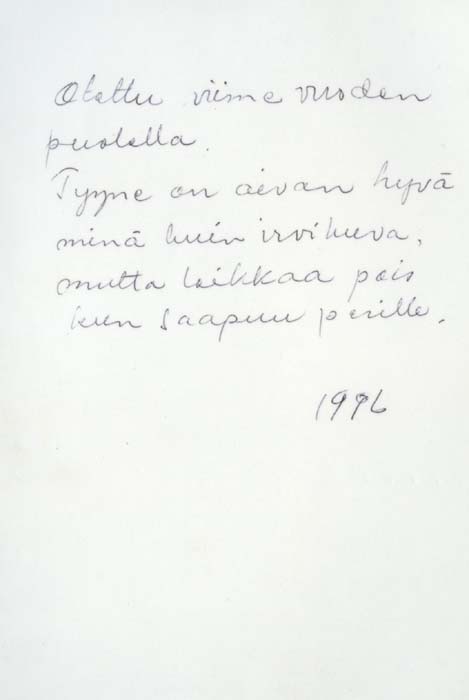 Otettu viime vuoden
puolella.
Tyyne on aivan hyvä
minä kuin irvikuva,
mutta leikkaa pois
kun saapuu perille.
1996